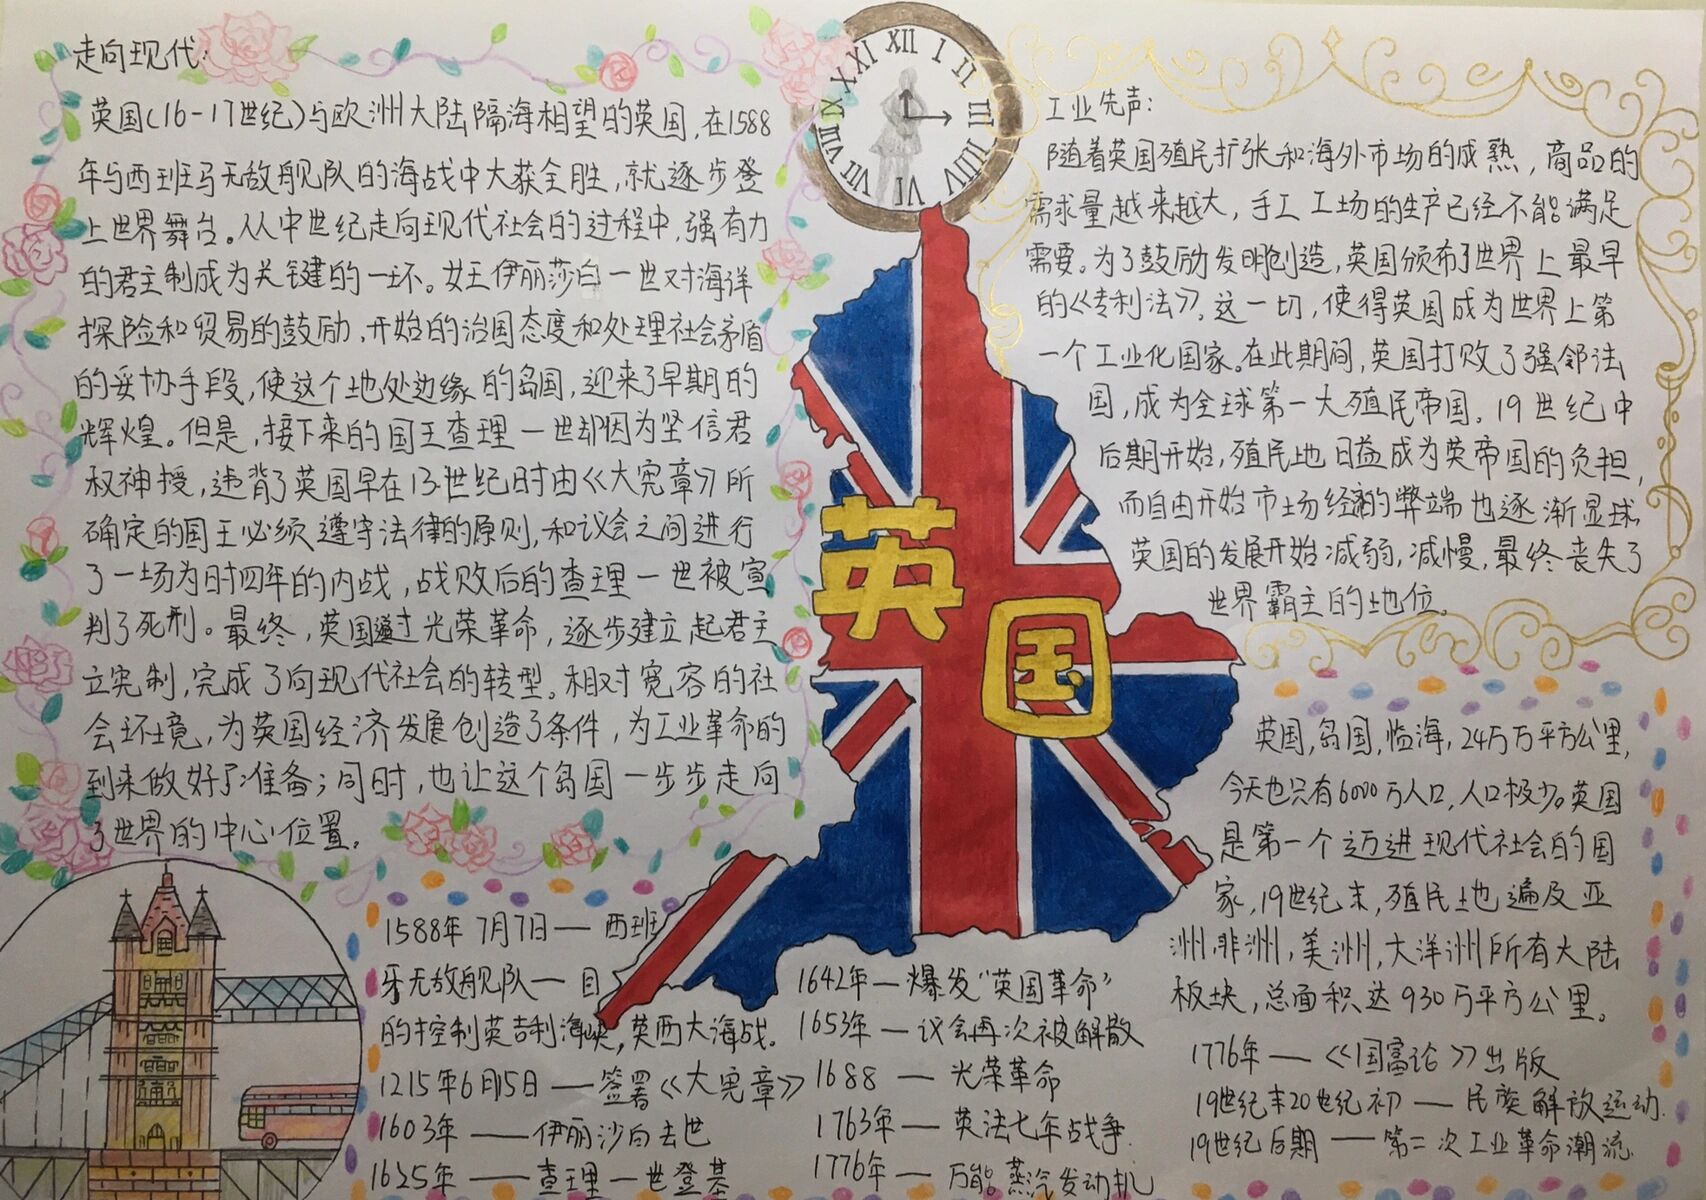 走向现代:
英国(16-17世纪)与欧洲大陆隔海相望的英国,在1588
年与西班马无敌舰队的海战中大获全胜,就逐步登
上世界舞台。从中世纪走向现代社会的过程中,强有力
的君主制成为关键的一环。女王伊丽莎白一世对海洋
探险和贸易的鼓励、开始的治国态度和处理社会矛盾
的妥协手段,使这个地处边缘的岛国,迎来了早期的
辉煌。但是,接下来的国王查理一世却因为坚信君
权神授,违背了英国早在13世纪时由《大宪章》所
确定的国王必须遵守法律的原则,和议会之间进行
了一场为时四年的内战,战败后的查理一世被宣
判了死刑。最终,英国通过光荣革命,逐步建立起君主
立宪制,完成了向现代社会的转型。相对宽容的社
会环境,为英国经济发展创造了条件,为工业革命的
到来做好了准备;同时,也让这个岛国一步步走向
了世界的中心位置。
XII I II III IIII IV VI VII VIII XI X XI
英国
工业先声:
随着英国殖民扩张和海外市场的成熟,商品的
需求量越来越大,手工工场的生产已经不能满足
需要。为了鼓励发明创造,英国颁布了世界上最早
的《专利法》。这一切,使得英国成为世界上第
一个工业化国家。在此期间,英国打败了强邻法
国,成为全球第一大殖民帝国。19世纪中
后期开始,殖民地日益成为英帝国的负担,
而自由开始市场经济的弊端也逐渐显球
英国的发展开始减弱,减慢,最终丧失了
世界霸主的地位。
英国,岛国,临海,24万万平方公里,
今天也只有6000万人口,人口极少。英国
是第一个迈进现代社会的国
家,19世纪末,殖民地遍及亚
洲,非洲,美洲,大洋洲所有大陆
板块,总面积达930万平方公里。
1588年7月7日—西班
牙无敌舰队—目
的控制英吉利海峡,英西大海战.
1215年6月15日—签署《大宪章》
1603年—伊丽沙白去世
1625年—查理一世登基
1642年—爆发“英国革命”
1653年—议会再次被解散
1688—光荣革命
1763年—英法七年战争.
1776年—万能蒸汽发动机
1776年—《国富论》出版
19世纪末20世纪初—民族解放运动.
19世纪后期—第二次工业革命潮流.